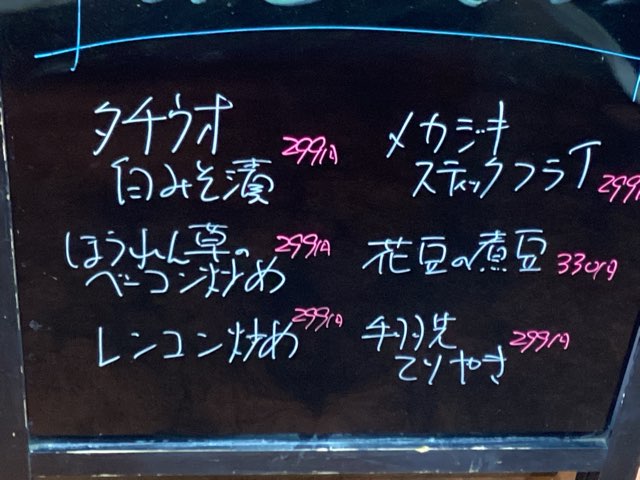 タチウオ
白みそ漬 299円
ほうれん草の
ベーコン炒め 299円
レンコン炒め 299円
メカジキ
スティックフライ 299
花豆の煮豆 330円
手羽先
てりやき 299円